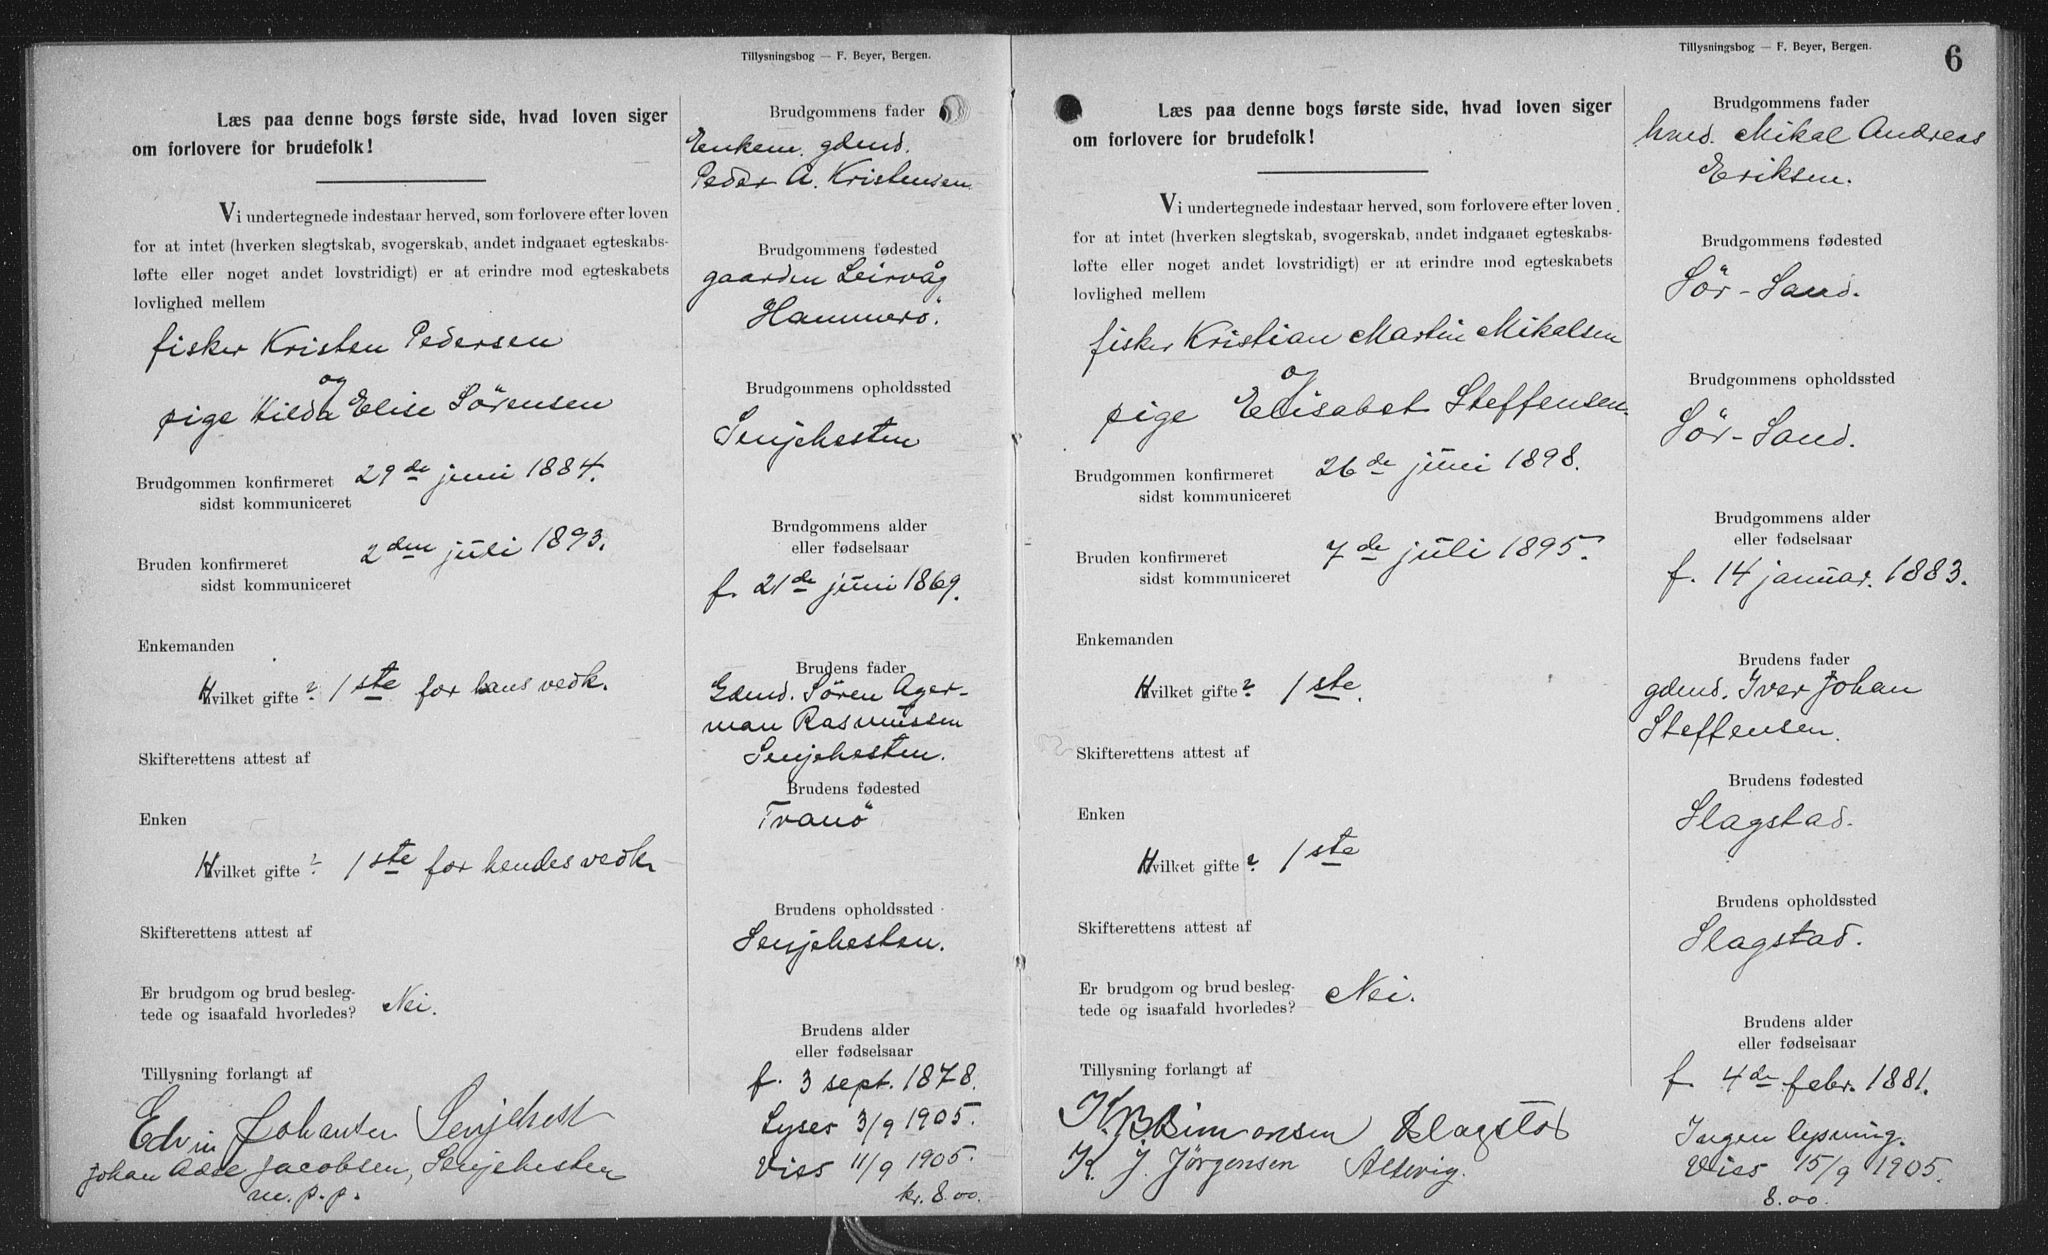 Tillysningsbog — F. Beyer, Bergen.
Læs paa denne bogs første side, hvad loven siger
om forlovere for brudefolk!
Vi undertegnede indestaar herved, som forlovere efter loven
for at intet (hverken slegtskab, svogerskab, andet indgaaet egteskabs-
løfte eller noget andet lovstridigt) er at erindre mod egteskabets
lovlighed mellem
fisker Kristen Pedersen
og
pige Hilda Elise Sørensen
Brudgommen konfirmeret 29de juni 1884.
sidst kommuniceret
Bruden konfirmeret 2den juli 1893.
sidst kommuniceret
Enkemanden
Hvilket gifte? 1ste for hans vedk.
Skifterettens attest af
Enken
Hvilket gifte? 1ste for hendes vedk
Skifterettens attest af
Er brudgom og brud besleg-
tede og isaafald hvorledes? Nei.
Tillysning forlangt af
Edvin Johanten Senjehest
Johan Jacobsen, Senjehesten
m.p.p.
Brudgommens fader
Enkem. gdmd.
Peder A. Kristensen
Brudgommens fødested
gaarden Leirvåg
Hammerö.
Brudgommens opholdssted
Senjehesten
Brudgommens alder
eller fødselsaar
f. 21de juni 1869.
Brudens fader
Gdmd. Sören Ager-
man Rasmussen
Senjehesten.
Brudens fødested
Tranö
Brudens opholdssted
Senjehesten.
Brudens alder
eller fødselsaar
f. 3 sept. 1878.
Lyses 3/9 1905.
Viss 11/9 1905.
kr. 8.00
Tillysningsbog — F. Beyer, Bergen.
6
Læs paa denne bogs første side, hvad loven siger
om forlovere for brudefolk!
Vi undertegnede indestaar herved, som forlovere efter loven
for at intet (hverken slegtskab, svogerskab, andet indgaaet egteskabs-
løfte eller noget andet lovstridigt) er at erindre mod egteskabets
lovlighed mellem
fisker Kristian Martin Mikalsen
og
pige Elisabet Steffensen.
Brudgommen konfirmeret 26de juni 1898.
sidst kommuniceret
Bruden konfirmeret 7de juli 1895.
sidst kommuniceret
Enkemanden
Hvilket gifte? 1ste.
Skifterettens attest af
Enken
Hvilket gifte? 1ste
Skifterettens attest af
Er brudgom og brud besleg-
tede og isaafald hvorledes? Nei.
Tillysning forlangt af
Simonsen Slagstad
K. J. Jørgensen Altevig.
Brudgommens fader
hmd. Mikal Andreas
Eriksen.
Brudgommens fødested
Sör-Sand.
Brudgommens opholdssted
Sör-Sand.
Brudgommens alder
eller fødselsaar
f. 14 januar. 1883.
Brudens fader
gdmd. Iver Johan
Steffensen.
Brudens fødested
Slagstad.
Brudens opholdssted
Slagstad.
Brudens alder
eller fødselsaar
f. 4de febr. 1881.
Ingen lysning.
Viss 15/9 1905.
8.00.